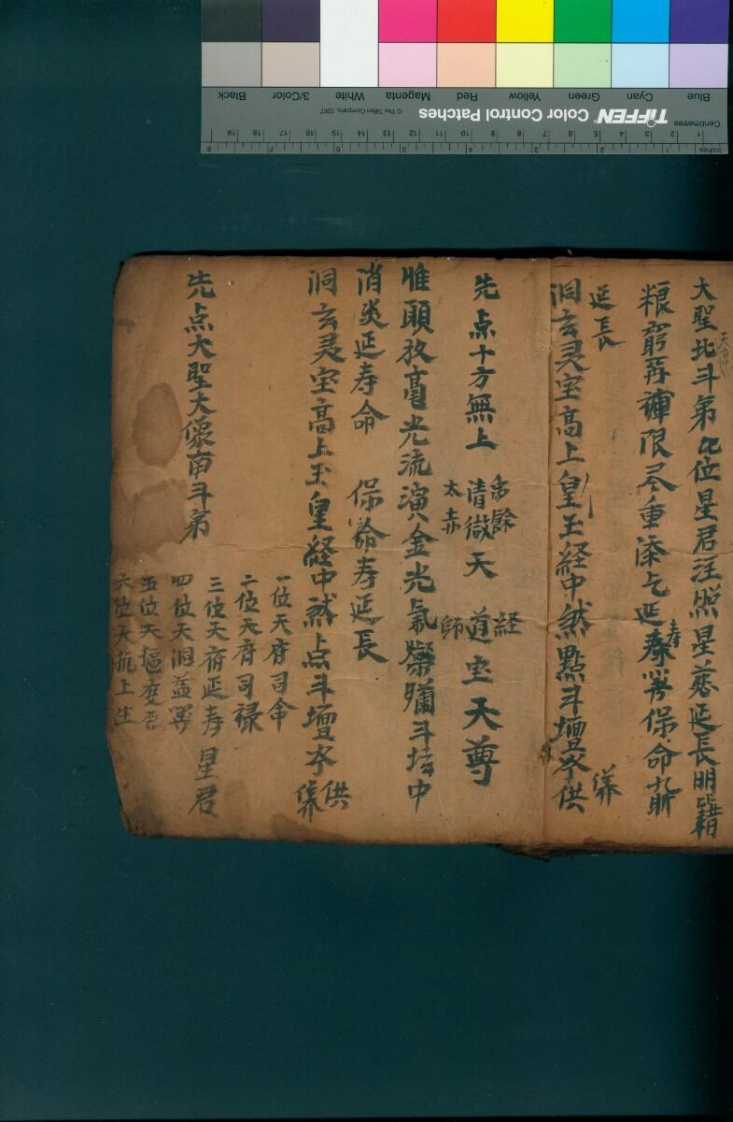 大聖北斗第七位星君注照星慈延長明籍
粮窮再禪限尽重添乞延寿筭保命
延長
洞玄灵宝高上皇玉経中然點斗壇岺供
养
先点十方無上
禹餘
清微天
太赤
経
道宝天尊
師
惟願放毫光流演金光氣
斗壇中
消災延寿命 保命寿延長
洞玄灵宝高上玉皇経中然点斗壇岺供
养
先点大聖大 南斗第
一位天府司命
二位天府司禄
三位天府延寿 星君
四位天洞益筭
五位天樞度厄
六位天机上生
Blue Cyan Green Yellow Red Magenta White 3/Color Black
TIFFEN Color Control Patches
© The Tiffen Company, 2007
Centimetres
1 2 3 4 5 6 7 8 9 10 11 12 13 14 15 16 17 18 19
Inches
1 2 3 4 5 6 7 8